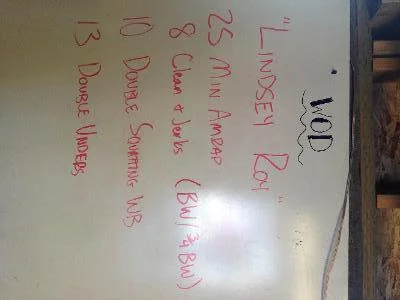 WOD
"LINDSEY ROY"
25 MIN AMRAP
8 Clean & Jerks (BW/¾BW)
10 DOUBLE SQUATTING WB
13 DOUBLE UNDERS